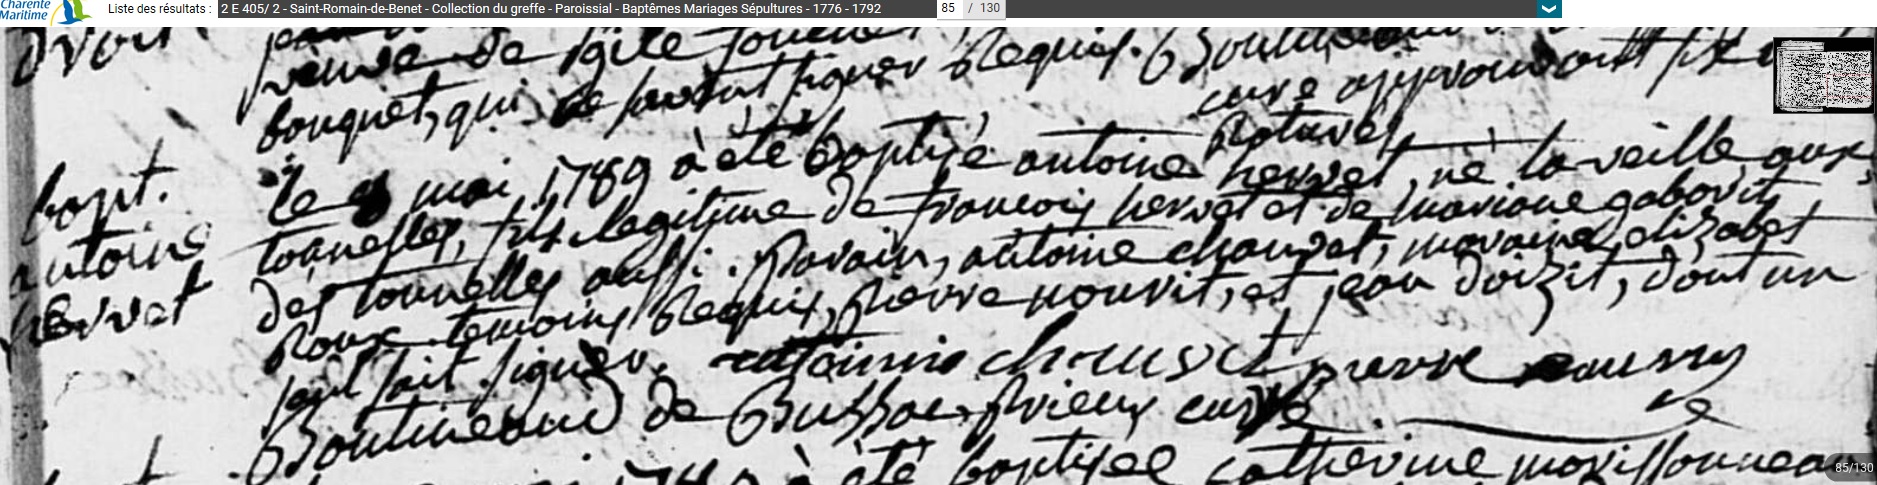 Charente
Maritime
Liste des résultats :
2 E 405/ 2 - Saint-Romain-de-Benet - Collection du greffe - Paroissial - Baptêmes Mariages Sépultures - 1776 - 1792
85 / 130
veuve de
bouquet, qui ne savent signer Requis. Boutineaud
curé approuvant
Ratures
bapt.
antoine
hervet
Le mai 1789 a été baptisé antoine hervet, né la veille aux
tounelles, fils legitime de francois hervet et de mariane gaborit
des tounelles aussi. Parain, antoine chauvet, maraine elizabet
Roux temoins Requis, pierre nourrit, et jean doizit, dont un
seul sait signer. antoinne chouvet pierre
Boutineaud de Bussac Prieur curé
mai 1789 a été baptisee catherine morissonneau
85/130